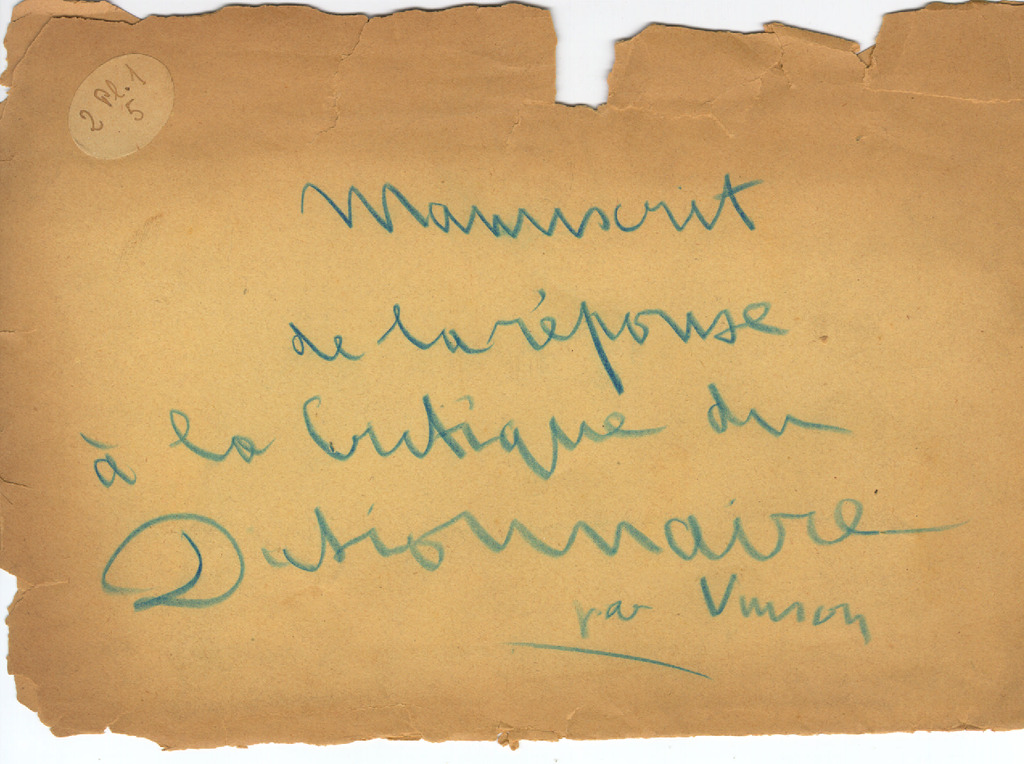 2 Pl. 1
5
Manuscrit
de la réponse
à la Critique du
Dictionnaire
par Vinson